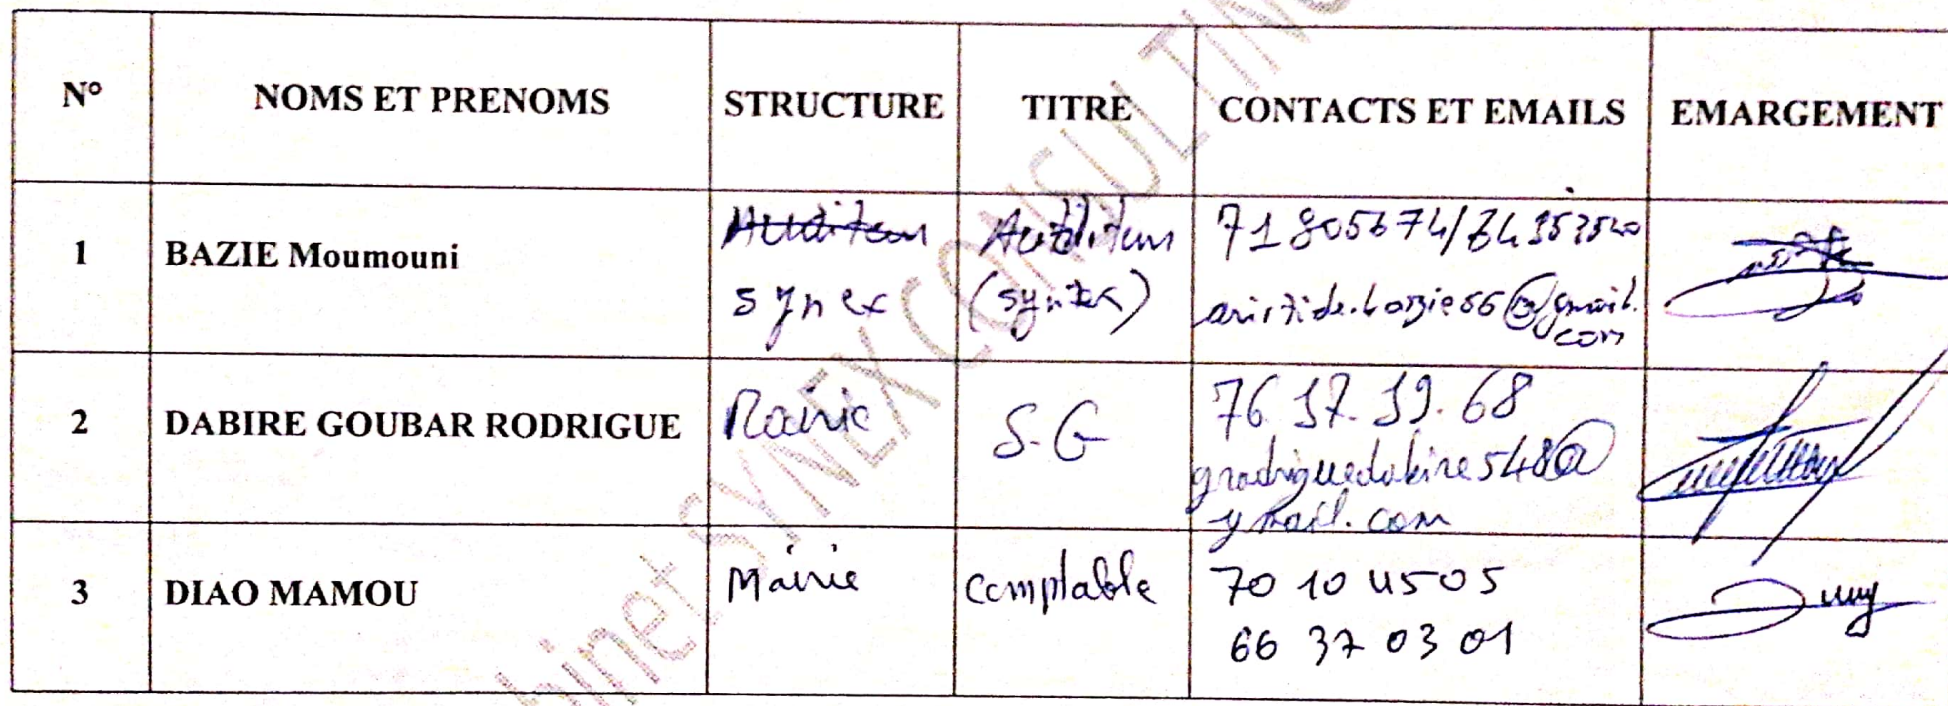 N° NOMS ET PRENOMS STRUCTURE TITRE CONTACTS ET EMAILS EMARGEMENT
1 BAZIE Moumouni Auditeur Auditeur
synex (synex) @gmail.
com
2 DABIRE GOUBAR RODRIGUE Mairie S.G 76.17.19.68
grodriguedabire548@
ymail.com
3 DIAO MAMOU Mairie comptable 70 10 45 05
66 37 03 01
binet SYNEX CONSULTING